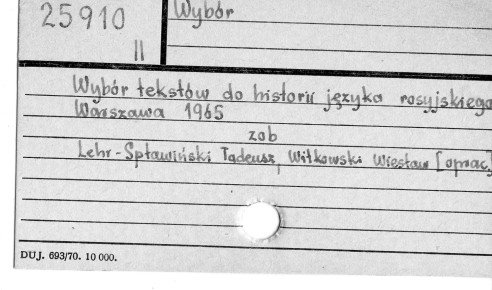 25910
II
Wybór
Wybór tekstów do historii języka rosyjskiego
Warszawa 1965
zob
Lehr-Spławiński Tadeusz, Witkowski Wiesław [oprac.]
DUJ. 693/70. 10 000.